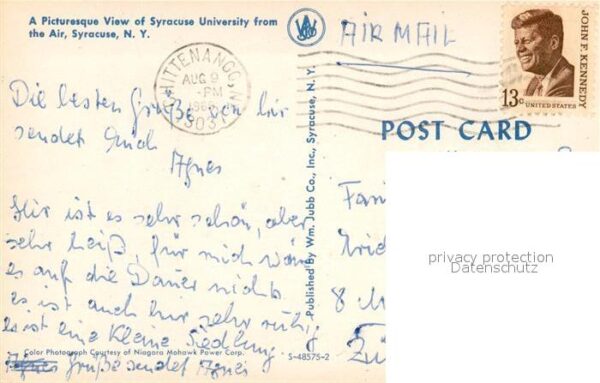 A Picturesque View of Syracuse University from
the Air, Syracuse, N. Y.
AIR MAIL
CHITTENANGO
AUG 9
PM
JOHN F. KENNEDY
13c UNITED STATES
POST CARD
Die besten Grüße von hir
sendet Euch
Agnes
Hir ist es sehr schön, aber
sehr heiß, für mich wär
es auf die Dauer nichts
es ist auch hir sehr ruhig
es ist eine Kleine Siedlung
Agnes Grüße sendet Agnes
Published by Wm. Jubb Co., Inc., Syracuse, N. Y.
Color Photograph Courtesy of Niagara Mohawk Power Corp.
S-48575-2
Fam
8 M
privacy protection
Datenschutz